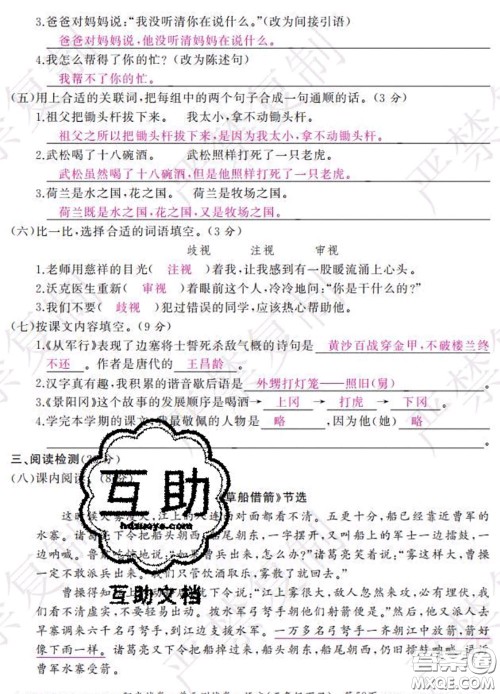 3.爸爸对妈妈说:“我没听清你在说什么。”(改为间接引语)
爸爸对妈妈说,他没听清妈妈在说什么。
4.我怎么帮得了你的忙?(改为陈述句)
我帮不了你的忙。
(五)用上合适的关联词,把每组中的两个句子合成一句通顺的话。(3分)
1.祖父把锄头杆拔下来。 我太小,拿不动锄头杆。
祖父之所以把锄头杆拔下来,是因为我太小,拿不动锄头杆。
2.武松喝了十八碗酒。 武松照样打死了一只老虎。
武松虽然喝了十八碗酒,但是他照样打死了一只老虎。
3.荷兰是水之国,花之国。 荷兰是牧场之国。
荷兰既是水之国,花之国,又是牧场之国。
(六)比一比,选择合适的词语填空。(3分)
歧视 注视 审视
1.老师用慈祥的目光( 注视 )着我,让我感到有一股暖流涌上心头。
2.沃克医生重新( 审视 )着眼前这个人,冷冷地问:“你是干什么的?”
3.我们不要( 歧视 )犯过错误的同学,应该热心帮助他。
(七)按课文内容填空。(9分)
1.《从军行》表现了边塞将士誓死杀敌气概的诗句是 黄沙百战穿金甲,不破楼兰终
不还 。作者是唐代的 王昌龄 。
2.汉字真有趣,我积累的谐音歇后语是 外甥打灯笼——照旧(舅) 。
3.《景阳冈》这个故事的发展顺序是喝酒→ 上冈 → 打虎 → 下冈 。
4.学完本学期的课文,我最敬佩的人物是 略 ,因为他(她) 略 。
三、阅读检测
(八)课内阅读。
草船借箭》节选
这时候大雾漫天,江上的人连面对面都看不清。五更十分,船已经靠近曹军的
水寨。诸葛亮下令把船头朝西,船尾朝东,一字摆开,又叫船上的军士一边擂鼓,一
边呐喊。鲁肃吃惊地说:“如果曹兵出来,怎么办?”诸葛亮笑着说:“雾这样大,曹操
一定不敢派兵出来。我们只管饮酒取乐,雾散了就回去。”
曹操得知后,江上雾很大,敌人忽然来攻,必有埋伏,我们
看不清虚实,不要轻易出动。拨水军弓弩手朝他们射箭就好。”然后,他又派人去
旱寨调来六千名弓弩手,到江边支援水军。一万多名弓弩手一齐朝江中放箭,箭好
像下雨一样。诸葛亮又下令把船掉过来,船头朝东,船尾朝西,仍旧擂鼓呐喊,逼近
曹军水寨受箭。
互助
hdzuoye.com
互助文档
严禁复制